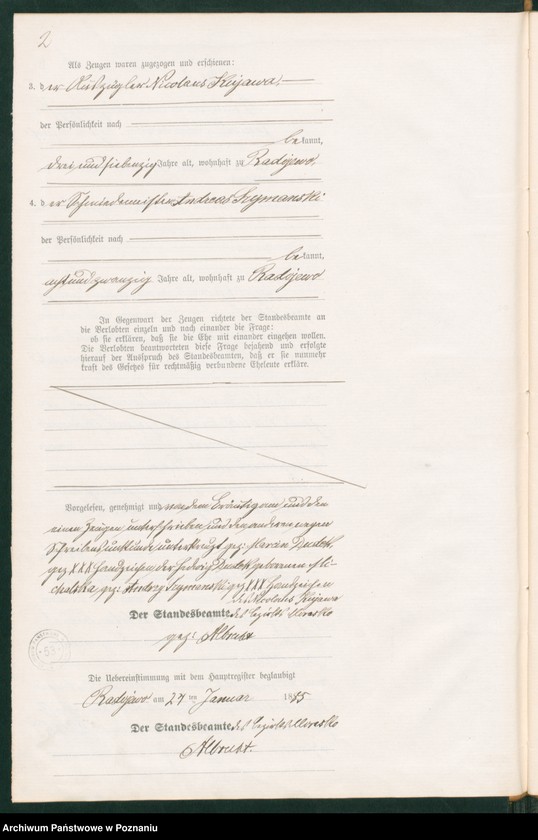 2
Als Zeugen waren zugezogen und erschienen:
3. der Auszügler Nicolaus Kujawa,
der Persönlichkeit nach
bekannt,
drei und siebenzig Jahre alt, wohnhaft zu Radojewo
4. der Schmiedemeister Andreas Szymanski
der Persönlichkeit nach
bekannt,
acht und zwanzig Jahre alt, wohnhaft zu Radojewo
In Gegenwart der Zeugen richtete der Standesbeamte an
die Verlobten einzeln und nach einander die Frage:
ob sie erklären, daß sie die Ehe mit einander eingehen wollen.
Die Verlobten beantworteten diese Frage bejahend und erfolgte
hierauf der Ausspruch des Standesbeamten, daß er sie nunmehr
kraft des Gesetzes für rechtmäßig verbundene Eheleute erkläre.
Vorgelesen, genehmigt und von dem Bräutigam und dem
einen Zeugen unterschrieben, und den anderen wegen
Schreibensunkunde unterkreuzt gez: Marcin
gez XXX Handzeichen der Hedwig geborenen
gez: Andrzy Szymanski gez XXX Handzeichen
des Nicolaus Kujawa
Der Standesbeamte des Bezirks Morasko
gez: Albrecht
Die Uebereinstimmung mit dem Hauptregister beglaubigt
Radojewo am 27 ten Januar 1885
Der Standesbeamte des Bezirks Morasko
Albrecht.
53
Archiwum Państwowe w Poznaniu